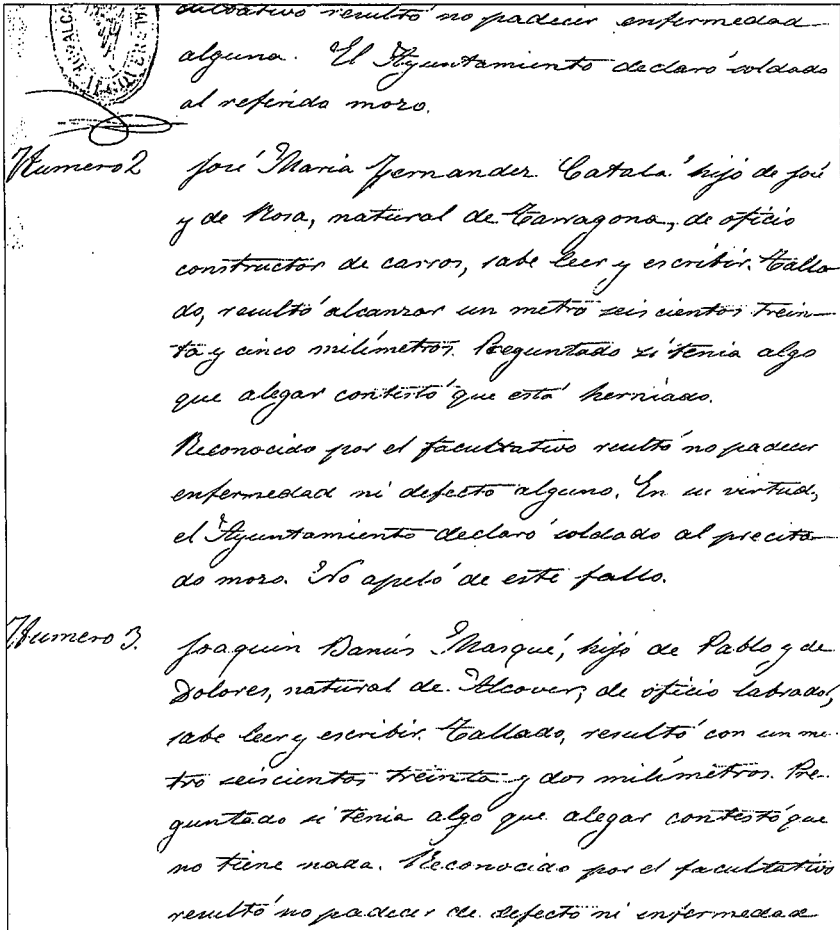 cultativo resultó no padecer enfermedad
alguna. El Ayuntamiento declaró soldado
al referido mozo.
Numero 2 José Maria Fernandez Catalá hijo de José
y de Rosa, natural de Tarragona, de oficio
constructor de carros, sabe leer y escribir. Talla
do, resultó alcanzar un metro seiscientos trein-
ta y cinco milímetros. Preguntado si tenia algo
que alegar contestó que está herniado.
Reconocido por el facultativo resultó no padecer
enfermedad ni defecto alguno. En su virtud,
el Ayuntamiento declaró soldado al precita-
do mozo. No apeló de este fallo.
Numero 3. Joaquin Banús Masqué, hijo de Pablo y de
Dolores, natural de Alcover, de oficio labrador,
sabe leer y escribir. Tallado, resultó con un me-
tro seiscientos treinta y dos milímetros. Pre-
guntado si tenia algo que alegar contestó que
no tiene nada. Reconocido por el facultativo
resultó no padecer de defecto ni enfermedad